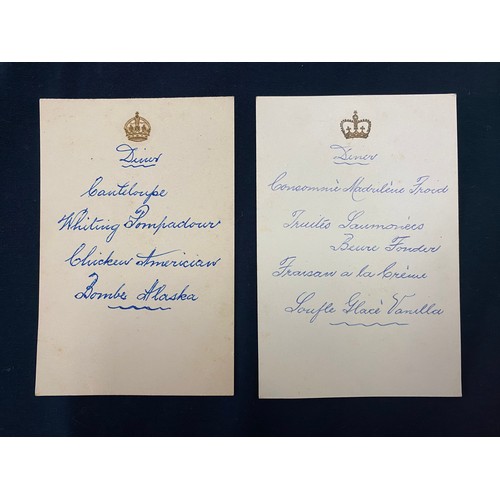 Diner
Canteloupe
Whiting Pompadour
Chicken Americian
Bombe Alaska
Diner
Consommè Madulène Froid
Truites Saumonées
Beure Fonder
Fraisan a la Crème
Soufle Glacè Vanilla